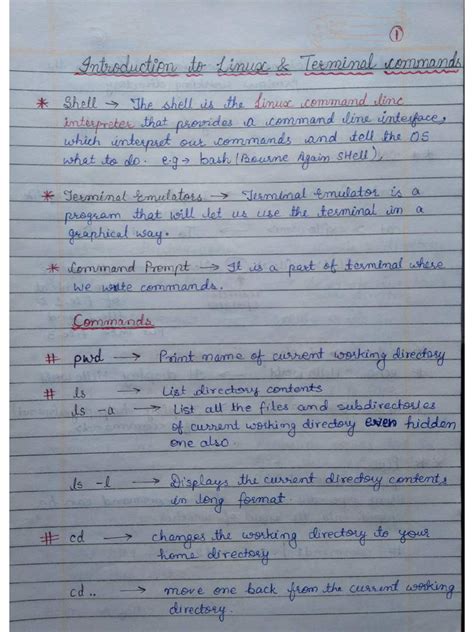 1
Introduction to Linux & Terminal commands
* Shell → The shell is the Linux command line
interpreter that provides a command line interface,
which interpret our commands and tell the OS
what to do. e.g → bash (Bourne Again SHell),
* Terminal Emulators → Terminal Emulator is a
program that will let us use the terminal in a
graphical way.
* Command Prompt → It is a part of terminal where
we write commands.
Commands
# pwd → Print name of current working directory
# ls → List directory contents
ls -a → List all the files and subdirectories
of current working directory even hidden
one also.
ls -l → Displays the current directory contents
in long format.
# cd → changes the working directory to your
home directory
cd.. → move one back from the current working
directory.